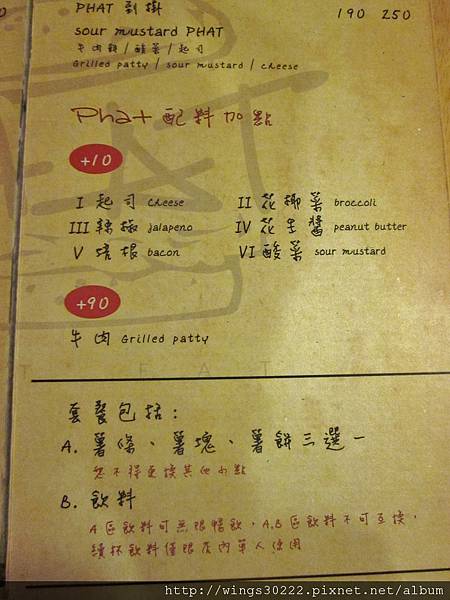 PHAT 到掛 190 250
sour mustard PHAT
牛肉餅 / 酸菜 / 起司
Grilled patty / sour mustard / cheese
Phat 配料加點
+10
I 起司 cheese II 花椰菜 broccoli
III 辣椒 jalapeno IV 花生醬 peanut butter
V 培根 bacon VI 酸菜 sour mustard
+90
牛肉 Grilled patty
套餐包括：
A. 薯條、薯塊、薯餅三選一
恕不得更換其他小點
B. 飲料
A區飲料可無限暢飲，A.B區飲料不可互換，
續杯飲料僅限店內單人使用
http://wings30222.pixnet.net/album